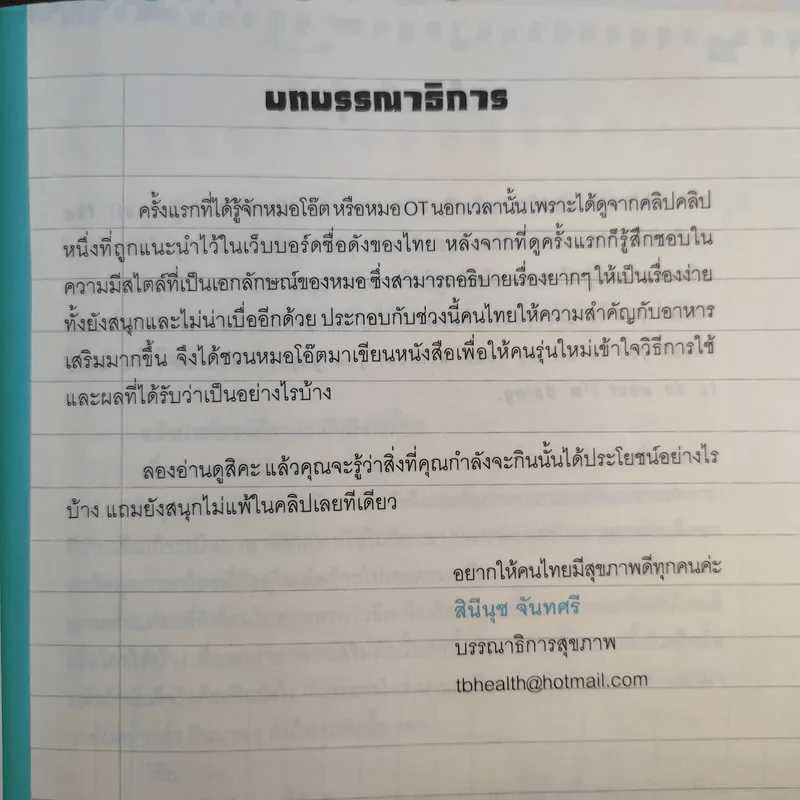 บทบรรณาธิการ
ครั้งแรกที่ได้รู้จักหมอโอ๊ต หรือหมอ OT นอกเวลานั้น เพราะได้ดูจากคลิปคลิป
หนึ่งที่ถูกแนะนำไว้ในเว็บบอร์ดชื่อดังของไทย หลังจากที่ดูครั้งแรกก็รู้สึกชอบใน
ความมีสไตล์ที่เป็นเอกลักษณ์ของหมอ ซึ่งสามารถอธิบายเรื่องยากๆ ให้เป็นเรื่องง่าย
ทั้งยังสนุกและไม่น่าเบื่ออีกด้วย ประกอบกับช่วงนี้คนไทยให้ความสำคัญกับอาหาร
เสริมมากขึ้น จึงได้ชวนหมอโอ๊ตมาเขียนหนังสือเพื่อให้คนรุ่นใหม่เข้าใจวิธีการใช้
และผลที่ได้รับว่าเป็นอย่างไรบ้าง
ลองอ่านดูสิคะ แล้วคุณจะรู้ว่าสิ่งที่คุณกำลังจะกินนั้นได้ประโยชน์อย่างไร
บ้าง แถมยังสนุกไม่แพ้ในคลิปเลยทีเดียว
อยากให้คนไทยมีสุขภาพดีทุกคนค่ะ
สินีนุช จันทศรี
บรรณาธิการสุขภาพ
tbhealth@hotmail.com